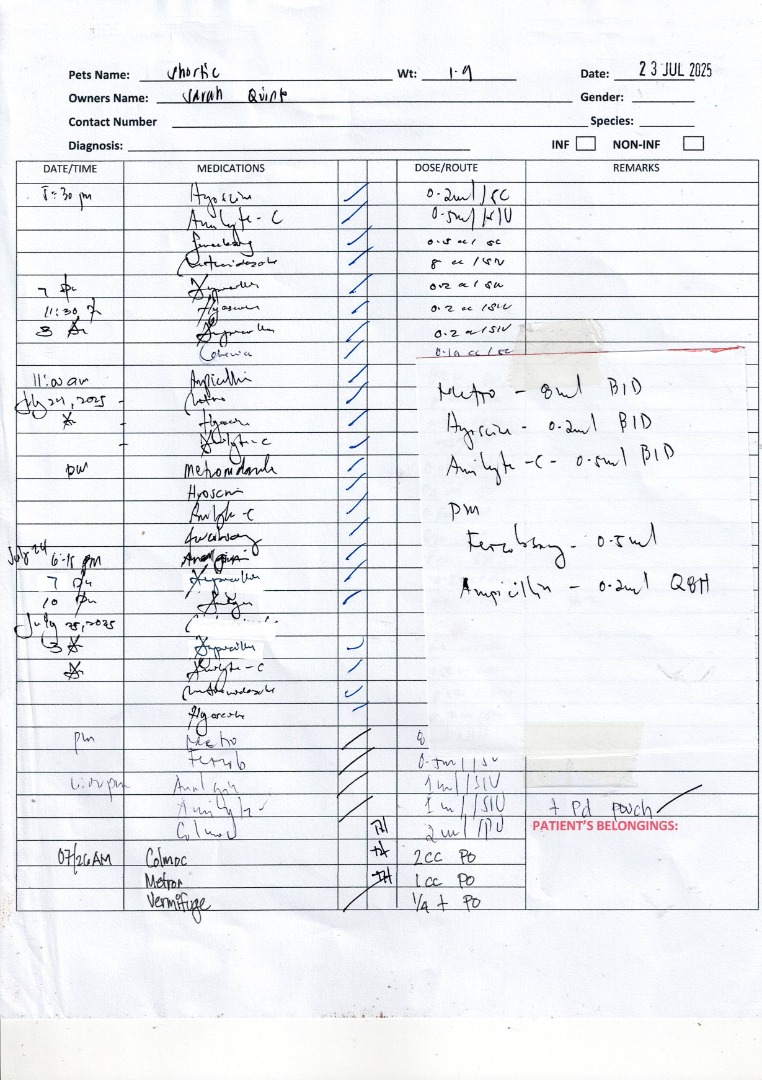 Pets Name: Shortie Wt: 1.9 Date: 23 JUL 2025
Owners Name: Sarah Gender:
Contact Number Species:
Diagnosis: INF NON-INF
DATE/TIME MEDICATIONS DOSE/ROUTE REMARKS
5:30 pm Hyoscine 0.2ml/SC
Amilyte-C 0.5ml/SIV
0.5 cc/SC
Metronidazole 8 cc/SIV
7 pm Ampicillin 0.2 cc/SIV
11:30 Hyoscine 0.2 cc/SIV
3 Ampicillin 0.2 cc/SIV
11:00 am Ampicillin
July 24, 2025 -
Hyoscine
- Amilyte-C
pm Metronidazole
Hyoscine
Amilyte-C
July 24 6:15 pm
7 pm Ampicillin
10 pm
July 25, 2025
3 Ampicillin
Amilyte-C
Metronidazole
Hyoscine
pm Metro 8
Ferob 0.5ml/SC
6:00 pm Analgin 1ml/SIV
Amilyte 1ml/SIV + Pd pouch
Colmoc TH 2ml/PO PATIENT'S BELONGINGS:
07/26 AM Colmoc TH 2cc PO
Metron TH 1cc PO
Vermifuge 1/4 t PO
Metro - 8ml BID
Hyoscine - 0.2ml BID
Amilyte-C - 0.5ml BID
pm
0.5ml
Ampicillin - 0.2ml Q8H